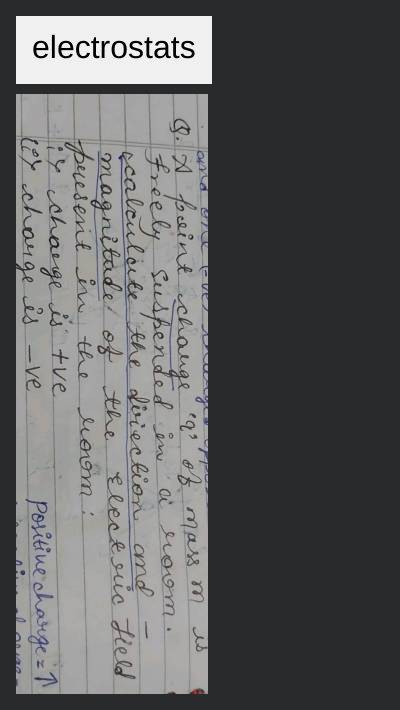 electrostats
Q. A point charge 'q' of mass m is
freely suspended in a room.
calculate the direction and -
magnitude of the electric field
present in the room:
i) charge is +ve
ii) charge is -ve
Positive charge = ↑